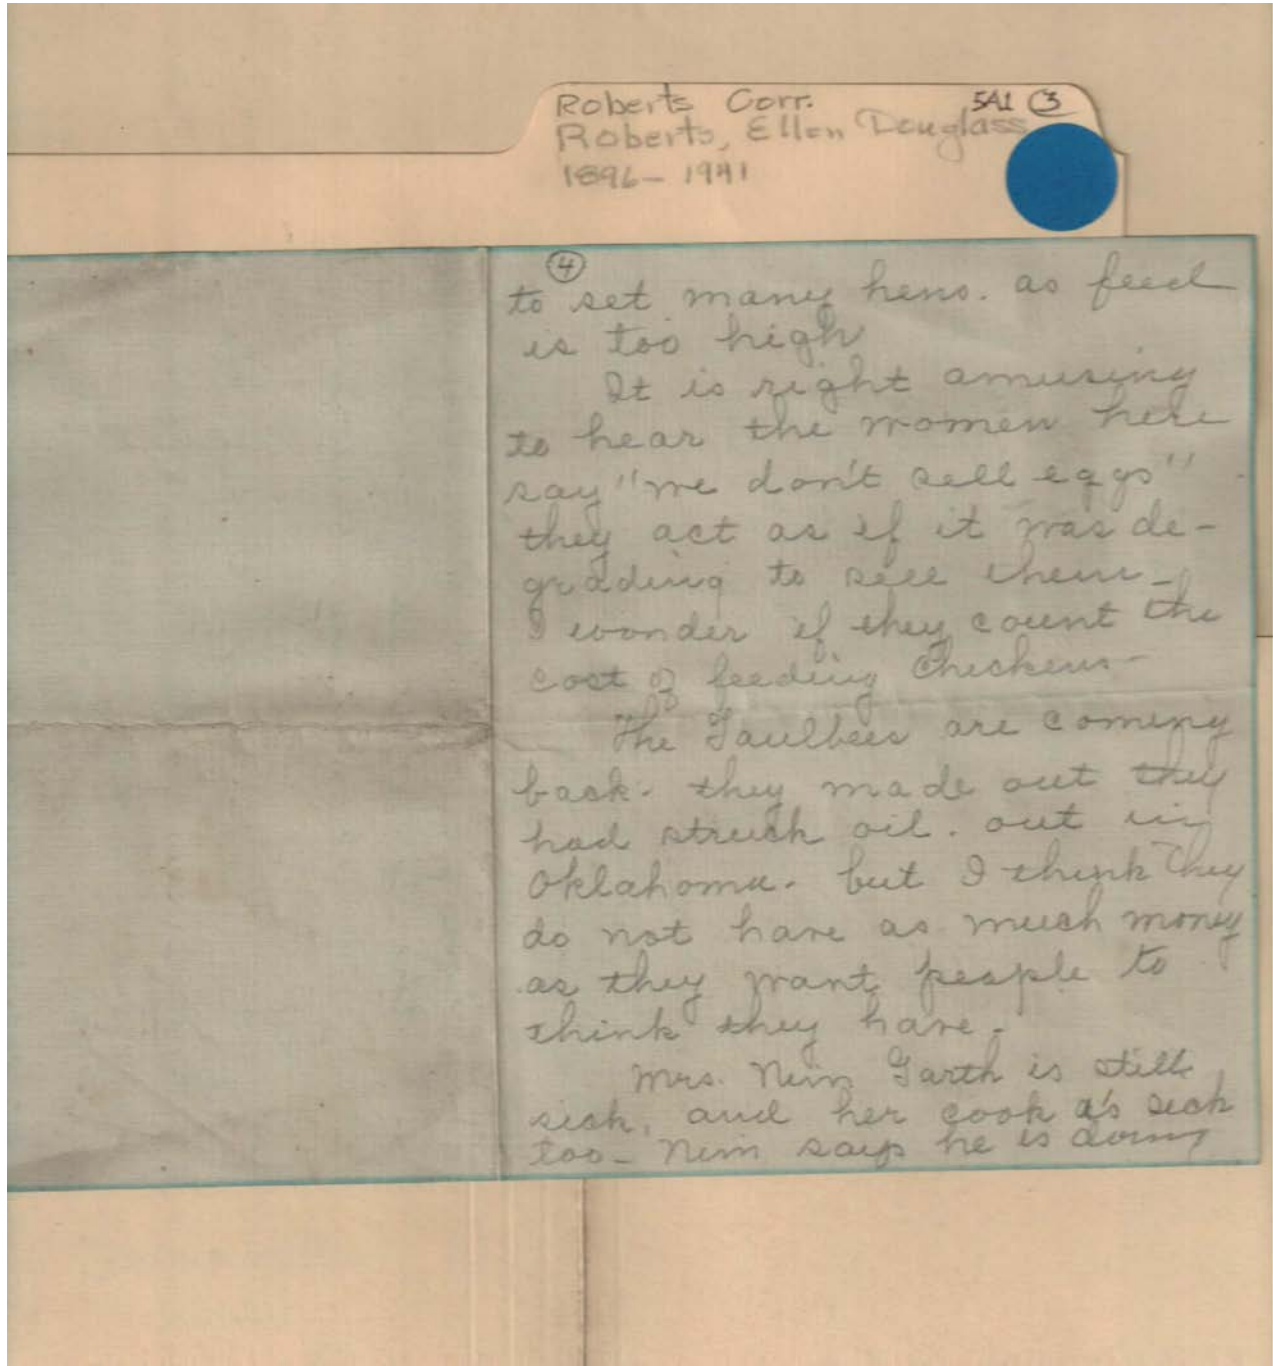 Roberts Corr. 5A1 3
Roberts, Ellen Douglass
1896-1941
4
to set many hens. as feed
is too high
It is right amusing
to hear the women here
say "we don't sell eggs"
they act as if it was de-
grading to sell them-
I wonder if they count the
cost of feeding chickens-
The Faulbees are coming
back. they made out they
had struck oil. out in
Oklahoma. but I think they
do not have as much money
as they want people to
think they have.
Mrs. Nim Garth is still
sick, and her cook is sick
too- Nim says he is doing